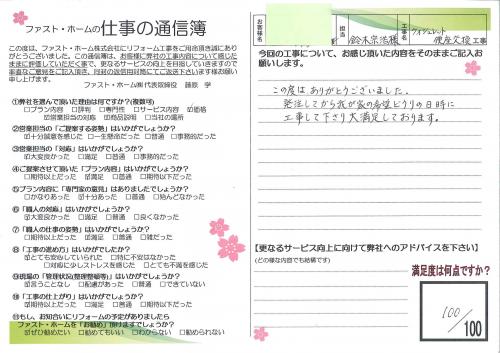 ファスト・ホームの仕事の通信簿
この度は、ファスト・ホーム株式会社にリフォーム工事をご用命頂き誠にあ
りがとうございました。この通信簿は、お客様に弊社の工事内容について感じた
ままに評価していただく事で、更なるサービスの向上を目指していきますので
率直なご意見をご記入頂き、同封の返信用封筒にてご返送下さいます様お願い
申し上げます。
ファスト・ホーム㈱代表取締役 藤原 学
①弊社を選んで頂いた理由は何ですか？(複数可)
□プラン内容 □評判 □専門性 □サービス内容 ☑価格
☑営業担当の対応 ☑商品説明 □当社の場所
②営業担当の「ご提案する姿勢」はいかがでしょうか？
☑十分誠意を感じた □一生懸命だった □普通 □事務的だった
③営業担当の「対応」はいかがでしょうか？
☑大変良かった □満足 □普通 □事務的だった
④ご提案させて頂いた「プラン内容」はいかがでしょうか？
☑期待以上だった □満足 □普通 □期待以下だった
⑤プラン内容に「専門家の意見」はありましたでしょうか？
□かなりあった ☑十分あった □普通 □殆んどなかった
⑥「職人の対応」はいかがでしょうか？
☑大変良かった □満足 □普通 □良くなかった
⑦「職人の仕事の姿勢」はいかがでしょうか？
□期待以上だった ☑満足 □普通 □雑だった
⑧「工事の進め方」はいかがでしたでしょうか？
☑とても安心していられた □特に不安はなかった
□対応に少しストレスを感じた □とても不満を感じた
⑨現場の「管理状況(整理整頓等)」はいかがでしょうか？
☑言うことなし □配慮があった □普通 □できていない
⑩「工事の仕上がり」はいかがでしょうか？
☑期待以上だった □満足 □普通 □期待以下だった
⑪もし、お知合いにリフォームの予定がありましたら
ファスト・ホームを「お勧め」頂けますでしょうか？
☑ぜひ勧めたい □勧めてもいい □わからない □勧められない
お客様名
担当 鈴木宗浩様
工事名 ウォシュレット便座交換工事
今回の工事について、お感じ頂いた内容をそのままご記入お
願いします。
この度はありがとうございました。
発注してから我が家の希望どうりの日時に
工事して下さり大満足しております。
【更なるサービス向上に向けて弊社へのアドバイスを下さい】
(どの様な内容でも結構です)
満足度は何点ですか？
100/100